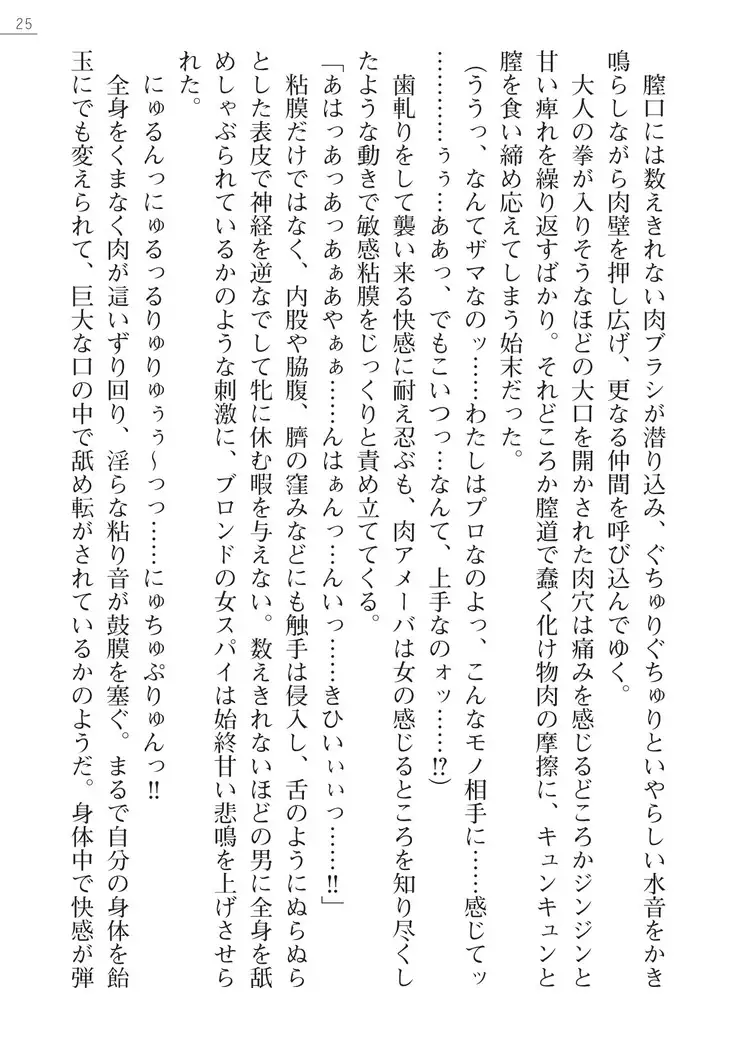 25
　膣口には数えきれない肉ブラシが潜り込み、ぐちゅりぐちゅりといやらしい水音をかき
鳴らしながら肉壁を押し広げ、更なる仲間を呼び込んでゆく。
　大人の拳が入りそうなほどの大口を開かされた肉穴は痛みを感じるどころかジンジンと
甘い痺れを繰り返すばかり。それどころか膣道で蠢く化け物肉の摩擦に、キュンキュンと
膣を食い締め応えてしまう始末だった。
（ううっ、なんてザマなのッ……わたしはプロなのよっ、こんなモノ相手に……感じてッ
…………ぅぅ…ああっ、でもこいつっ…なんて、上手なのォッ……!?）
　歯軋りをして襲い来る快感に耐え忍ぶも、肉アメーバは女の感じるところを知り尽くし
たような動きで敏感粘膜をじっくりと責め立ててくる。
「あはっあっあっあぁあやぁぁ……んはぁんっ…んいっ……きひいぃぃっ……!!」
　粘膜だけではなく、内股や脇腹、臍の窪みなどにも触手は侵入し、舌のようにぬらぬら
とした表皮で神経を逆なでして牝に休む暇を与えない。数えきれないほどの男に全身を舐
めしゃぶられているかのような刺激に、ブロンドの女スパイは始終甘い悲鳴を上げさせら
れた。
　にゅるんっにゅるっるりゅりゅぅぅ～っっ……にゅちゅぷりゅんっ!!
　全身をくまなく肉が這いずり回り、淫らな粘り音が鼓膜を塞ぐ。まるで自分の身体を飴
玉にでも変えられて、巨大な口の中で舐め転がされているかのようだ。身体中で快感が弾